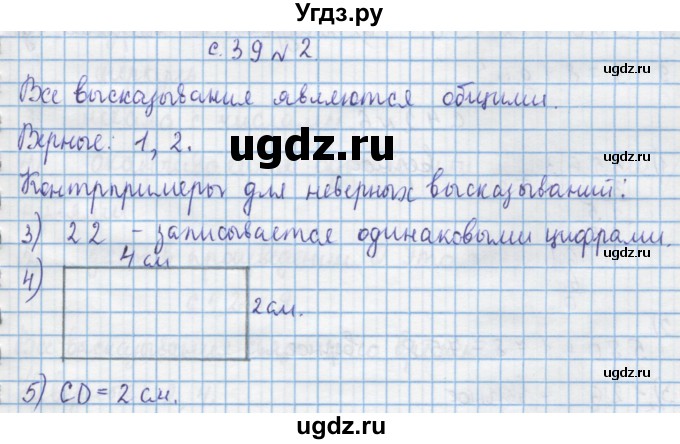 Угдз.ру
с. 39 № 2
ugdz.ru
Все высказывания являются общими.
Верные: 1, 2.
ugdz.ru
ugdz.ru
Контрпримеры для неверных высказываний:
3) 22 - записывается одинаковыми цифрами.
ugdz.ru
4 см
4)
2 см.
ugdz.ru
5) CD = 2 см.
ugdz.ru
Угдз.ру